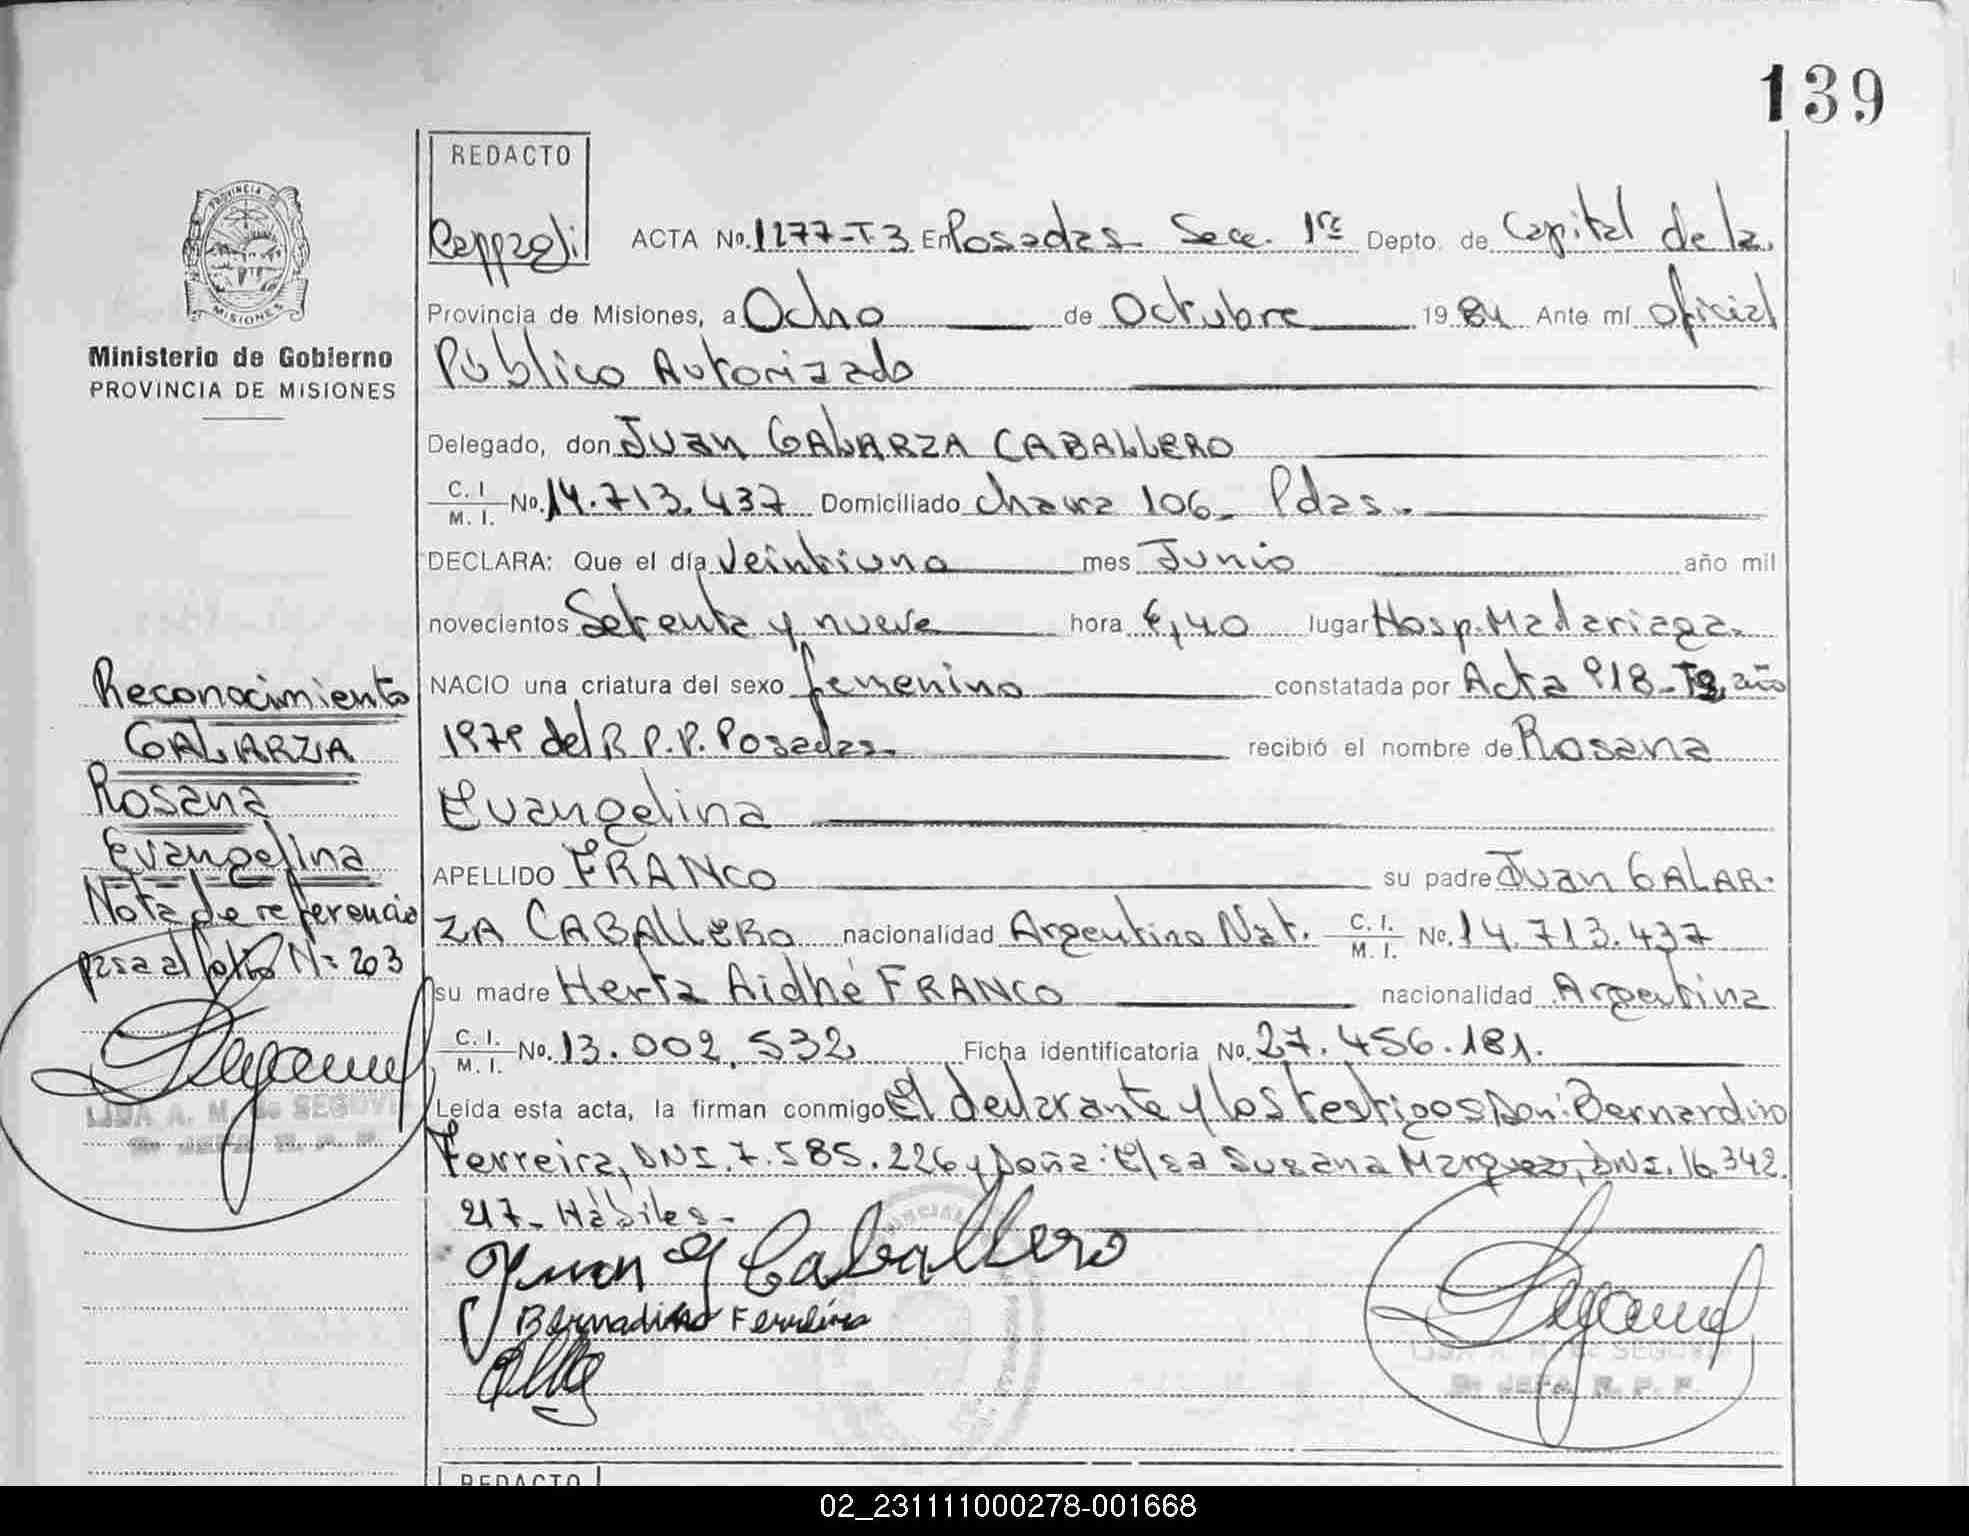 139
REDACTO
ACTA No. 1277-T3 En Posadas Secc. 1ra Depto. de Capital de la
PROVINCIA DE
MISIONES
Provincia de Misiones, a Ocho de Octubre 1984 Ante mí oficial
Ministerio de Gobierno
PROVINCIA DE MISIONES
Público Autorizado
Delegado, don Juan GALARZA CABALLERO
C. I. M. I. No. 14.713.437 Domiciliado chacra 106- Pdas.
DECLARA: Que el día veintiuno mes Junio año mil
novecientos Setenta y nueve hora 6,40 lugar Hosp. Madariaga.
NACIO una criatura del sexo femenino constatada por Acta 918-T2, año
1979 del R.P.P. Posadas. recibió el nombre de Rosana
Evangelina
APELLIDO FRANCO su padre Juan GALAR-
ZA CABALLERO nacionalidad Argentino Nat. C. I. M. I. No. 14.713.437
su madre Herta Aidhé FRANCO nacionalidad Argentina
C. I. M. I. No. 13.002.532 Ficha identificatoria No. 27.456.181.
Leída esta acta, la firman conmigo El declarante y los testigos Don: Bernardino
Ferreira, DNI. 7.585.226 y Doña: Elsa Susana Marquez, DNI. 16.342.
217- Hábiles-
Juan G Caballero
Bernadino Ferreira
Reconocimiento
GALARZA
Rosana
Evangelina
Nota de referencia
pasa al folio Nº 203
LISA A. M. de SEGOVIA
LISA A. M. de SEGOVIA
REDACTO
02_231111000278-001668